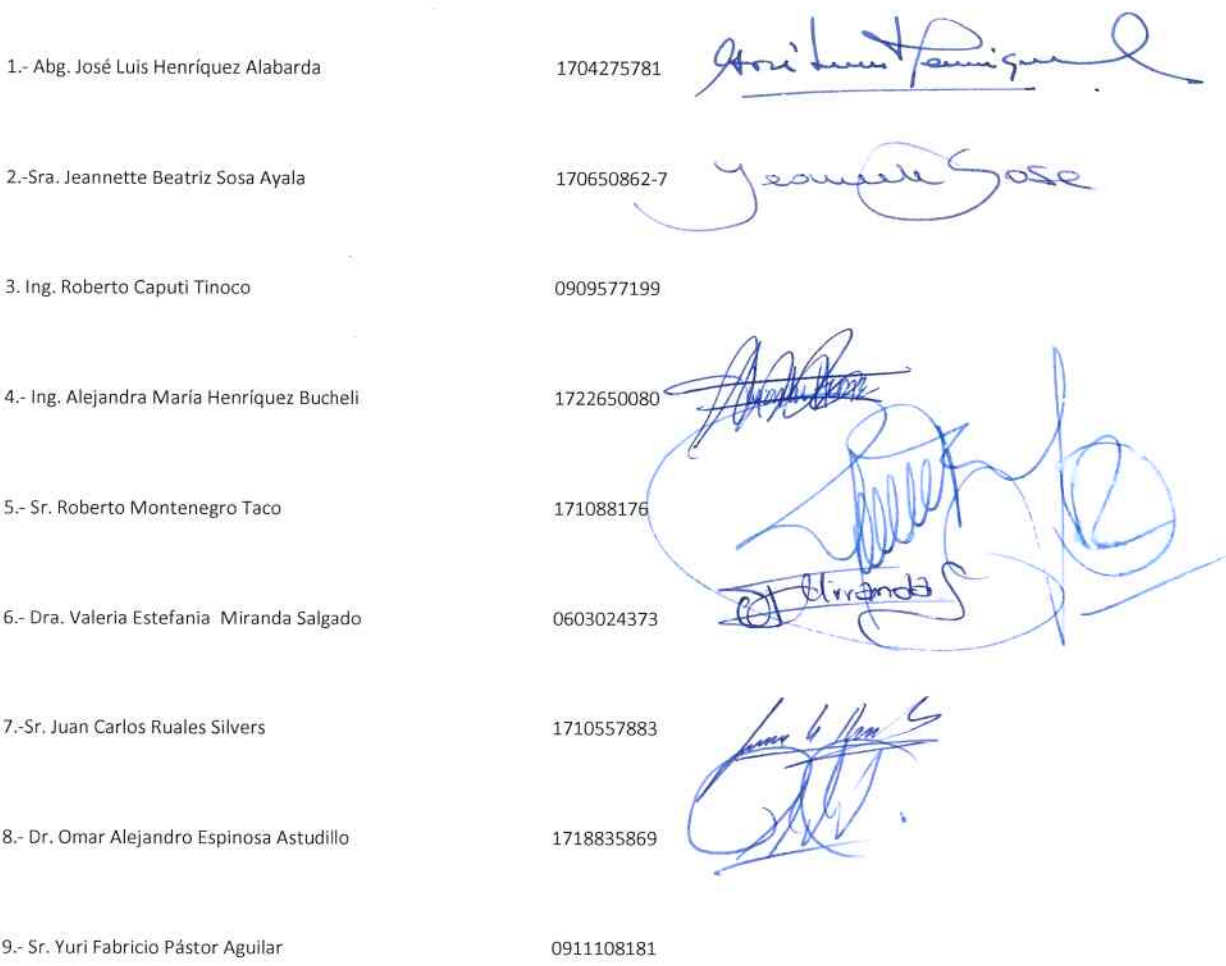 1.- Abg. José Luis Henríquez Alabarda 1704275781 José Luis Henríquez
2.-Sra. Jeannette Beatriz Sosa Ayala 170650862-7 Jeannette Sosa
3. Ing. Roberto Caputi Tinoco 0909577199
4.- Ing. Alejandra María Henríquez Bucheli 1722650080
5.- Sr. Roberto Montenegro Taco 171088176
6.- Dra. Valeria Estefania Miranda Salgado 0603024373 Miranda S
7.-Sr. Juan Carlos Ruales Silvers 1710557883
8.- Dr. Omar Alejandro Espinosa Astudillo 1718835869
9.- Sr. Yuri Fabricio Pástor Aguilar 0911108181